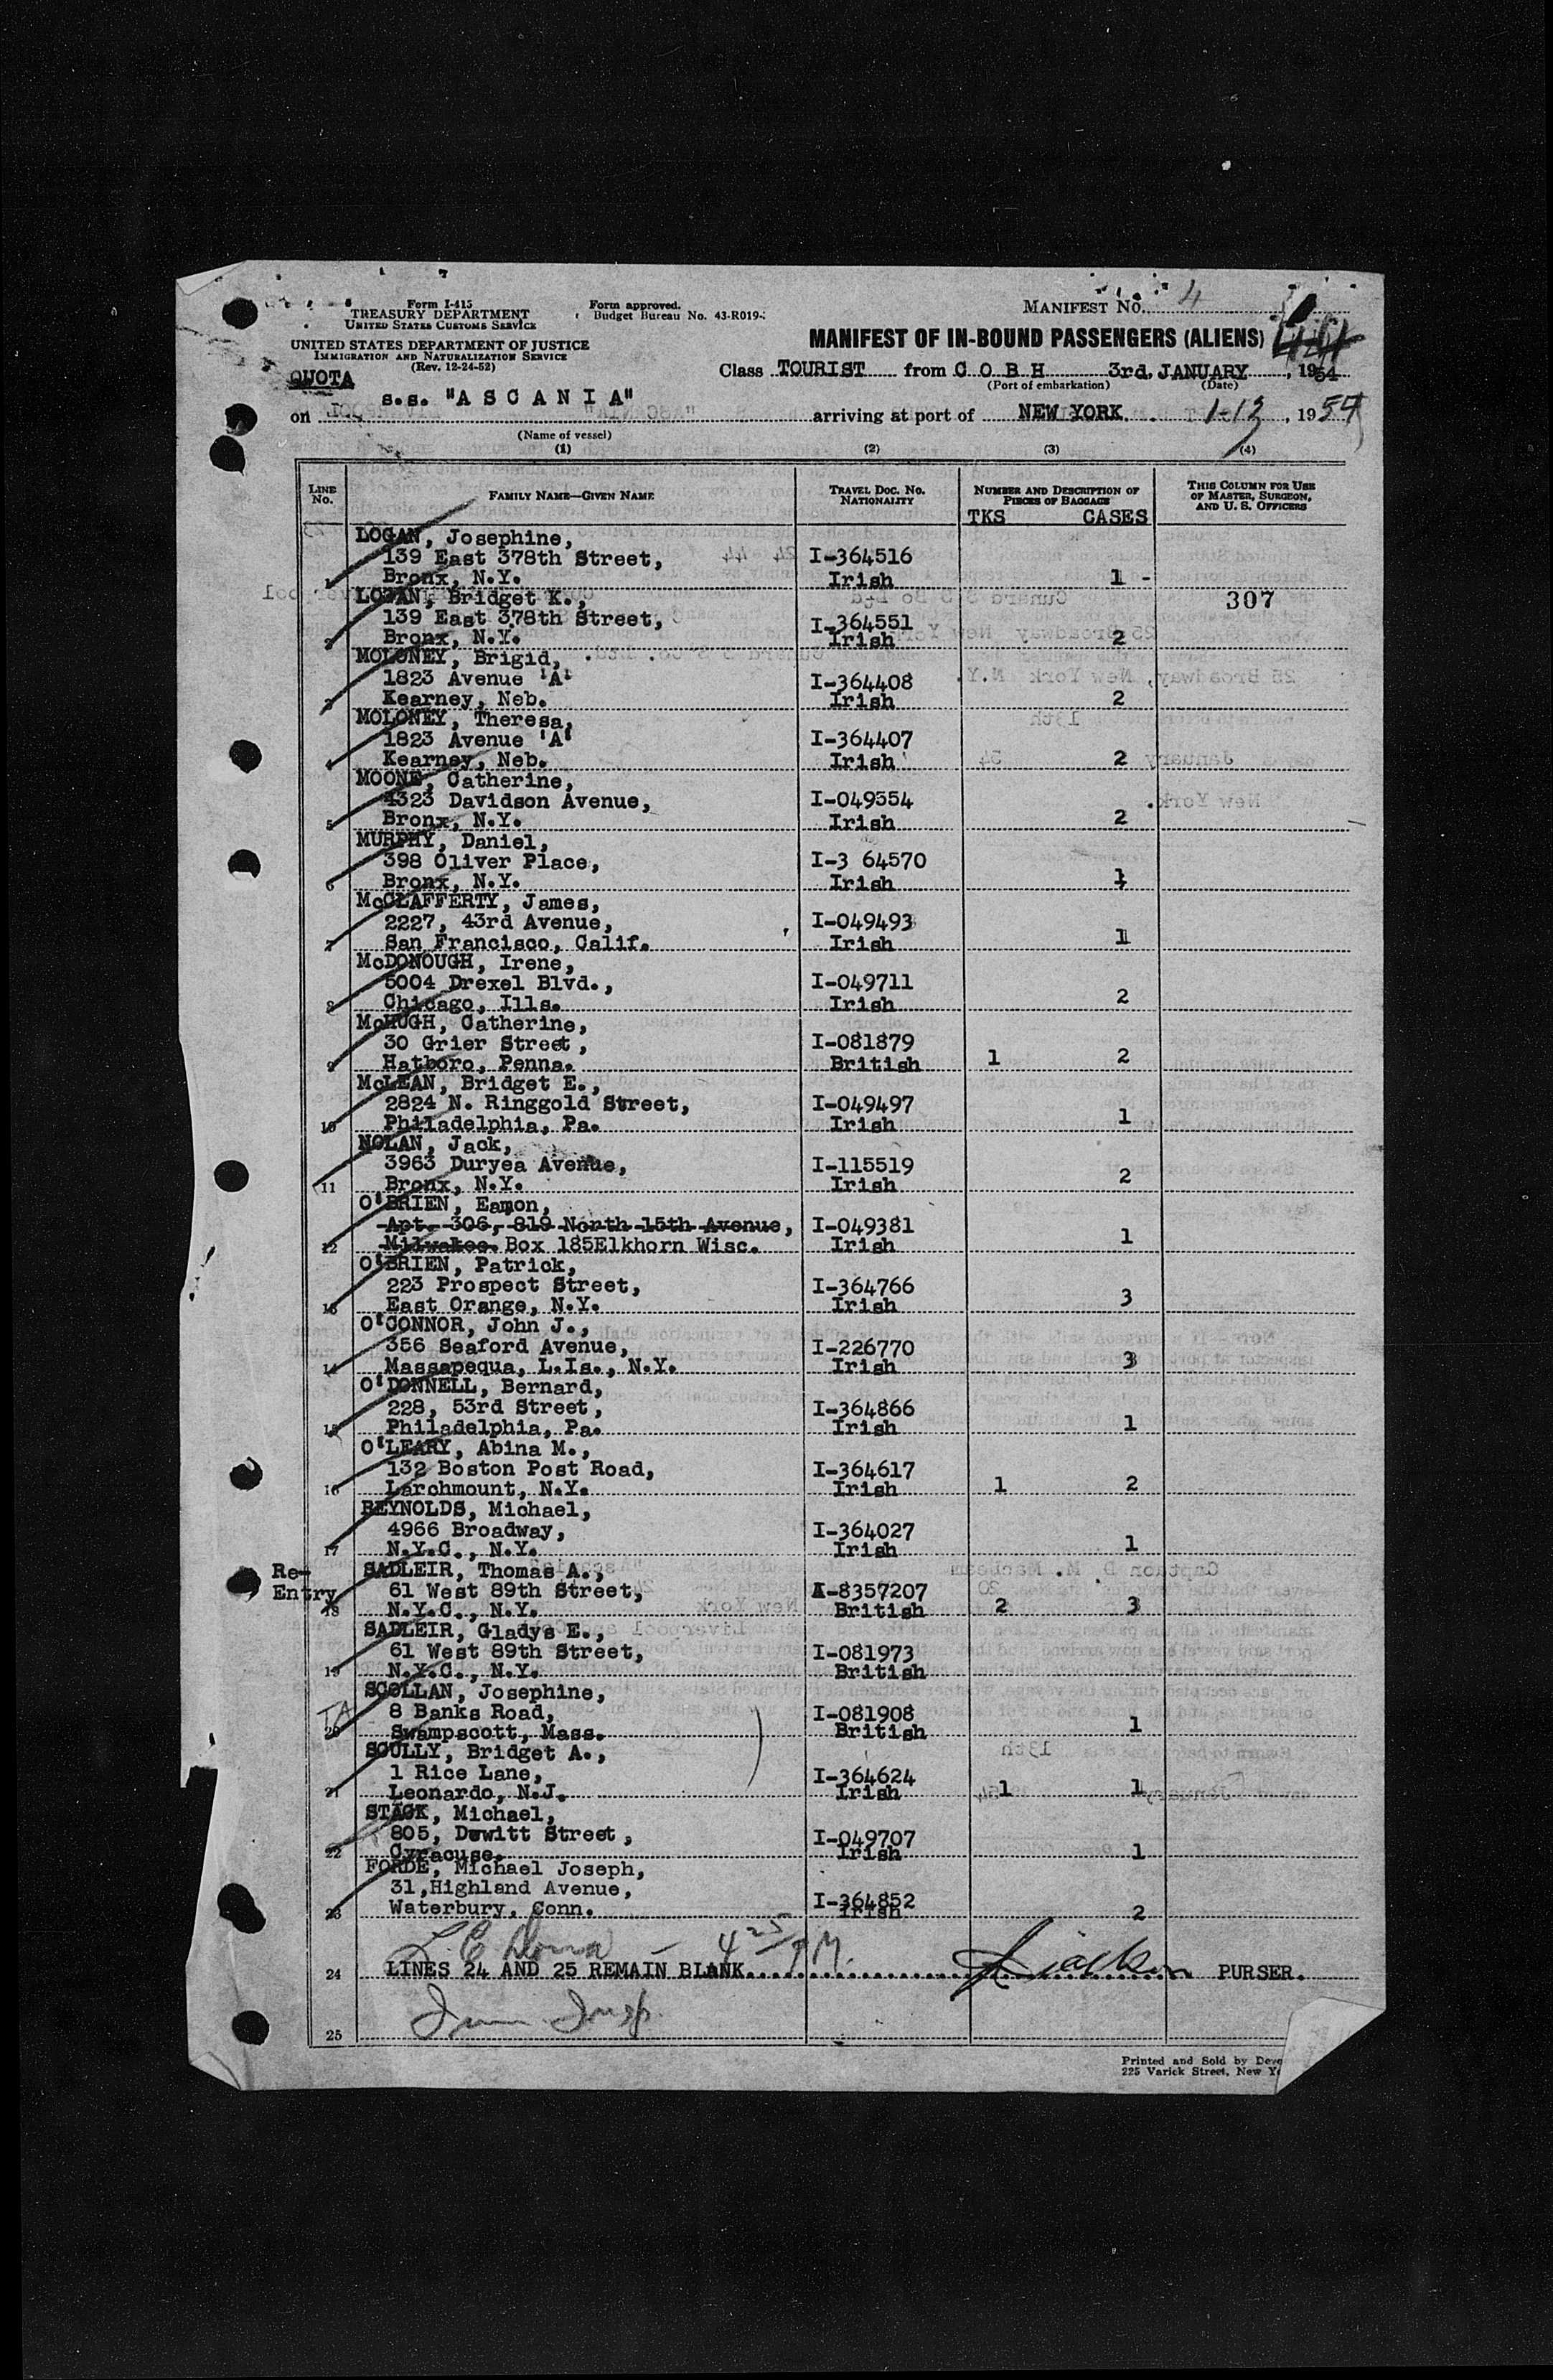 Form I-415
TREASURY DEPARTMENT
UNITED STATES CUSTOMS SERVICE
Form approved.
Budget Bureau No. 43-R019-
MANIFEST NO. 4
UNITED STATES DEPARTMENT OF JUSTICE
IMMIGRATION AND NATURALIZATION SERVICE
(Rev. 12-24-52)
MANIFEST OF IN-BOUND PASSENGERS (ALIENS)
QUOTA
Class TOURIST from C O B H 3rd. JANUARY, 1954
(Port of embarkation) (Date)
on s.s. "A S C A N I A" arriving at port of NEW YORK. 1-13, 1954
(Name of vessel)
(1) (2) (3) (4)
LINE No. FAMILY NAME—GIVEN NAME TRAVEL DOC. NO. NATIONALITY NUMBER AND DESCRIPTION OF PIECES OF BAGGAGE THIS COLUMN FOR USE OF MASTER, SURGEON, AND U. S. OFFICERS
TKS CASES
LOGAN, Josephine,
139 East 378th Street, I-364516
1 Bronx, N.Y. Irish 1 -
LOGAN, Bridget K., 307
139 East 378th Street, I-364551
2 Bronx, N.Y. Irish 2
MOLONEY, Brigid,
1823 Avenue 'A' I-364408
3 Kearney, Neb. Irish 2
MOLONEY, Theresa,
1823 Avenue 'A' I-364407
4 Kearney, Neb. Irish 2
MOONE, Catherine,
4323 Davidson Avenue, I-049354
5 Bronx, N.Y. Irish 2
MURPHY, Daniel,
398 Oliver Place, I-3 64570
6 Bronx, N.Y. Irish 1
McCLAFFERTY, James,
2227, 43rd Avenue, I-049493
7 San Francisco, Calif. Irish 1
McDONOUGH, Irene,
5004 Drexel Blvd., I-049711
8 Chicago, Ills. Irish 2
McHUGH, Catherine,
30 Grier Street, I-081879
9 Hatboro, Penna. British 1 2
McLEAN, Bridget E.,
2824 N. Ringgold Street, I-049497
10 Philadelphia, Pa. Irish 1
NOLAN, Jack,
3963 Duryea Avenue, I-115519
11 Bronx, N.Y. Irish 2
O'BRIEN, Eamon,
Apt. 306, 819 North 15th Avenue, I-049381
12 Milwakee. Box 185Elkhorn Wisc. Irish 1
O'BRIEN, Patrick,
223 Prospect Street, I-364766
13 East Orange, N.Y. Irish 3
O'CONNOR, John J.,
356 Seaford Avenue, I-226770
14 Massapequa, L.Is., N.Y. Irish 3
O'DONNELL, Bernard,
228, 53rd Street, I-364866
15 Philadelphia, Pa. Irish 1
O'LEARY, Abina M.,
132 Boston Post Road, I-364617
16 Larchmount, N.Y. Irish 1 2
REYNOLDS, Michael,
4966 Broadway, I-364027
17 N.Y.C., N.Y. Irish 1
Re- SADLEIR, Thomas A.,
Entry 61 West 89th Street, A-8357207
18 N.Y.C., N.Y. British 2 3
SADLEIR, Gladys E.,
61 West 89th Street, I-081973
19 N.Y.C., N.Y. British
SCOLLAN, Josephine,
8 Banks Road, I-081908
20 Swampscott, Mass. British 1
SCULLY, Bridget A.,
1 Rice Lane, I-364624
21 Leonardo, N.J. Irish 1 1
STACK, Michael,
805, Dewitt Street, I-049707
22 Cyracuse. Irish 1
FORDE, Michael Joseph,
31,Highland Avenue, I-364852
23 Waterbury, Conn. Irish 2
4 25 PM.
24 LINES 24 AND 25 REMAIN BLANK PURSER.
Imm Insp.
25
Printed and Sold by
225 Varick Street, New